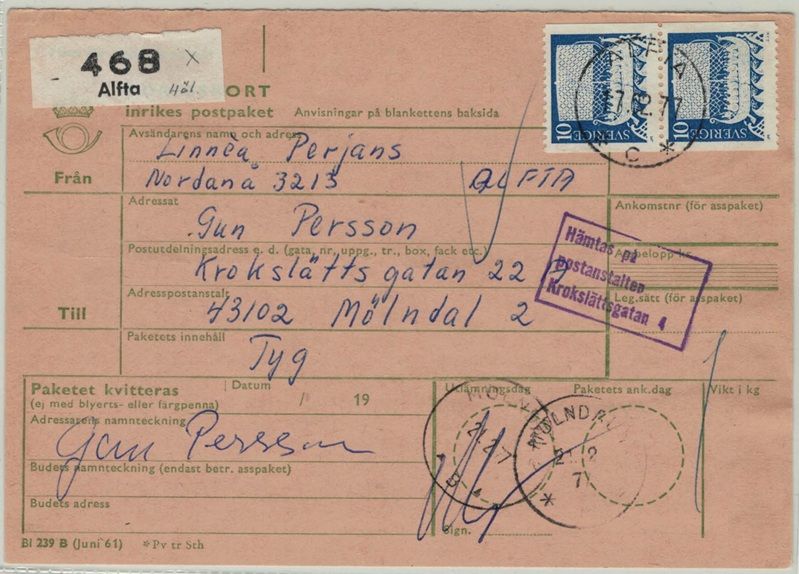 468 x
Alfta
ORT
inrikes postpaket
Anvisningar på blankettens baksida
10 SVERIGE
10 SVERIGE
ALFTA
17.12.77
C *
Avsändarens namn och adress
Linnéa Perjans
Från
Nordanå 3213 ALFTA
Adressat
Ankomstnr (för asspaket)
Gun Persson
Postutdelningsadress e. d. (gata, nr, uppg., tr., box, fack etc.)
Krokslätts gatan 22
Hämtas på
postanstalten
Krokslättsgatan 4
Adresspostanstalt
Leg.sätt (för asspaket)
Till
43102 Mölndal 2
Paketets innehåll
Tyg
Paketet kvitteras
(ej med blyerts- eller färgpenna)
Datum
19
Utlämningsdag
Paketets ank.dag
Vikt i kg
Adressatens namnteckning
Gun Persson
MÖLNDAL
Budets namnteckning (endast betr. asspaket)
B
*
Budets adress
Sign.
Bl 239 B (Juni 61) *Pv tr Sth